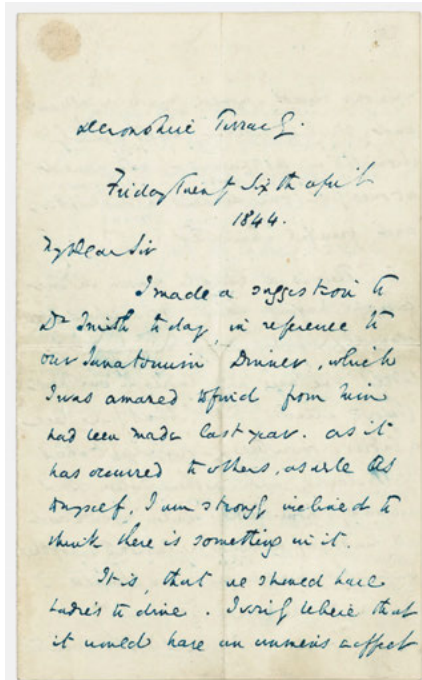 Devonshire Terrace.
Friday Twenty Sixth April
1844.
My Dear Sir
I made a suggestion to
Dr Smith to day, in reference to
our Sanatorium Dinner, which
I was amazed to find from him
had been made last year. As it
has occurred to others, as well as
to myself, I am strongly inclined to
think there is something in it.
It is, that we should have
Ladies to dine. I verily believe that
it would have an immense effect